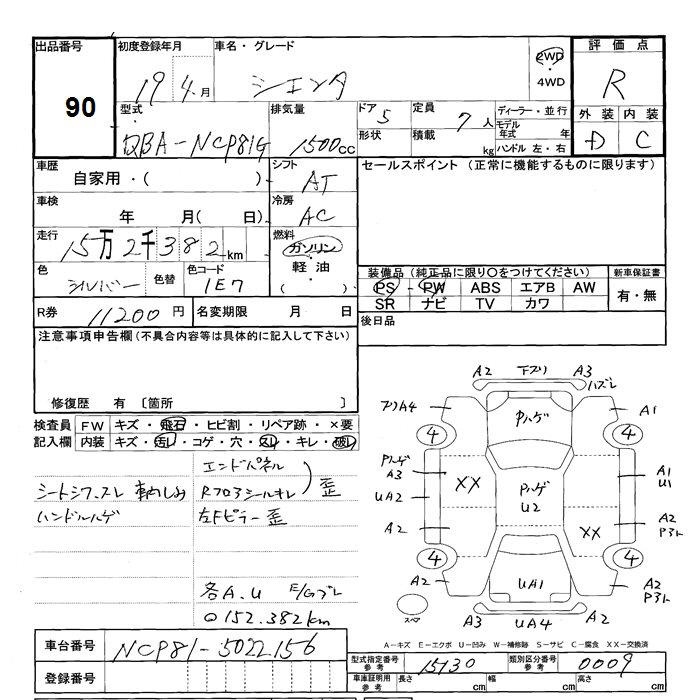 出品番号 90
初度登録年月 19 年 4 月
車名・グレード シエンタ
2WD
4WD
評価点 R
外装 内装
D C
型式 DBA-NCP81G
排気量 1500cc
ドア 5
形状
定員 7人
積載 kg
ディーラー・並行
モデル年式 年
ハンドル 左・右
車歴 自家用・( )
シフト AT
セールスポイント (正常に機能するものに限ります)
車検 年 月( 日)
冷房 AC
走行 15万2千382km
燃料 ガソリン・軽油・( )
色 シルバー 色替
色コード 1E7
装備品 (純正品に限り〇をつけてください)
新車保証書
PS PW ABS エアB AW
有・無
SR ナビ TV カワ
R券 11200円
名変期限 月 日
後日品
注意事項申告欄 (不具合内容等は具体的に記入して下さい)
修復歴 有 〔箇所 〕
検査員記入欄
FW キズ・飛石・ヒビ割・リペア跡・×要
内装 キズ・汚レ・コゲ・穴・スレ・キレ・破レ
エンドパネル
シートシワ、スレ 車内しみ Rフロアシールキレ 歪
ハンドルハゲ 左Fピラー歪
各A.U E/Gブレ
〇152.382km
A2 下ズリ A3
ハズレ
アリA4 Pハゲ A1
4 4
Pハゲ
A3 XX Pハゲ A1
UA2 U2 U1
A2 XX A2
P3ト
4 4
A2 UA1 A2
P3ト
スペア A3 UA4 A2
車台番号 NCP81-5022156
登録番号
A-キズ E-エクボ U-凹み W-補修跡 S-サビ C-腐食 XX-交換済
型式指定番号 参考 15130
類別区分番号 参考 0009
車庫証明用 参考 長さ cm 幅 cm 高さ cm